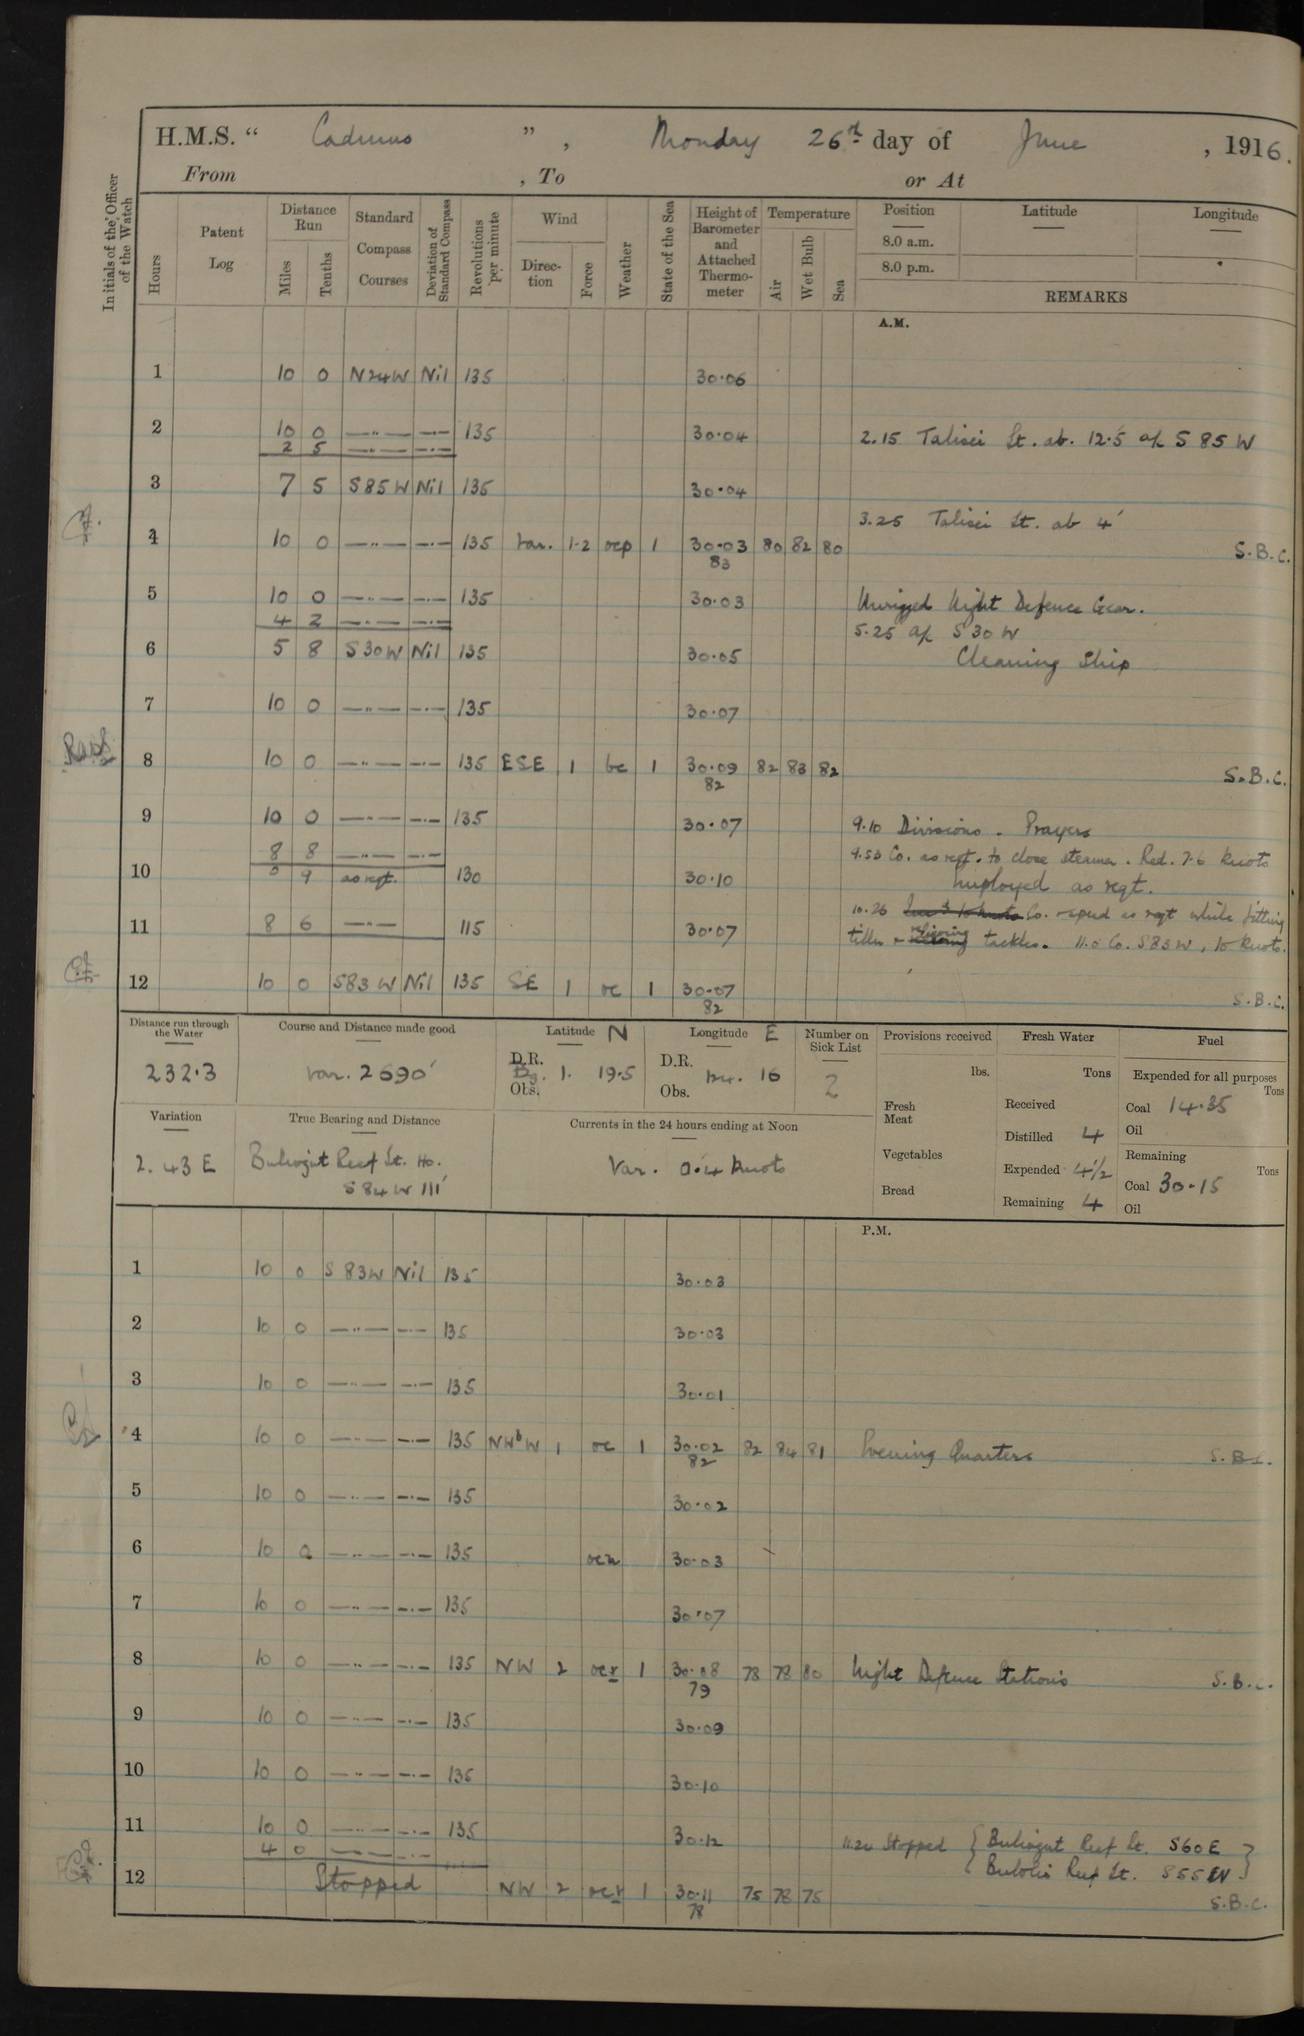 H.M.S. " Cadmus ", Monday 26th day of June, 1916.
From , To or At
Initials of the Officer of the Watch
Hours
Patent Log
Distance Run
Miles
Tenths
Standard Compass Courses
Deviation of Standard Compass
Revolutions per minute
Wind
Direction
Force
Weather
State of the Sea
Height of Barometer and Attached Thermometer
Temperature
Air
Wet Bulb
Sea
Position Latitude Longitude
8.0 a.m.
8.0 p.m.
REMARKS
A.M.
1 10 0 N24W Nil 135 30.06
2 10 0 —"— —"— 135 30.04 2.15 Talisei Lt. ab. 12.5 a/c S 85 W
2 5 —"— —"—
3 7 5 S85W Nil 135 30.04
3.25 Talisei Lt. ab 4'
4 10 0 —"— —"— 135 Var. 1-2 ocp 1 30.03 80 82 80 S.B.C.
83
5 10 0 —"— —"— 135 30.03 Unrigged Night Defence Gear.
4 2 —"— —"— 5.25 a/c S 30 W
6 5 8 S30W Nil 135 30.05 Cleaning Ship
7 10 0 —"— —"— 135 30.07
8 10 0 —"— —"— 135 ESE 1 bc 1 30.09 82 83 82 S.B.C.
82
9 10 0 —"— —"— 135 30.07 9.10 Divisions. Prayers
8 8 —"— —"— 9.53 Co. as reqt. to close steamer. Red. 7.6 knots
10 0 9 as reqt. 130 30.10 Employed as reqt.
10.26 Co. & speed as reqt while fitting
11 8 6 —"— 115 30.07 tiller & relieving tackles. 11.0 Co. S83W, 10 knots.
12 10 0 S83W Nil 135 SE 1 oc 1 30.07 S.B.C.
82
Distance run through the Water
232.3
Course and Distance made good
Var. 2690'
Latitude N
D.R. 1. 19.5
Obs.
Longitude E
D.R. 124. 16
Obs.
Number on Sick List
2
Provisions received
lbs.
Fresh Meat
Vegetables
Bread
Fresh Water
Tons
Received
Distilled 4
Expended 4½
Remaining 4
Fuel
Expended for all purposes
Tons
Coal 14.35
Oil
Remaining
Tons
Coal 30.15
Oil
Variation
2. 43 E
True Bearing and Distance
Bulirogut Reef Lt. Ho.
S 84 W 111'
Currents in the 24 hours ending at Noon
Var. 0.4 knots
P.M.
1 10 0 S 83W Nil 135 30.03
2 10 0 —"— —"— 135 30.03
3 10 0 —"— —"— 135 30.01
4 10 0 —"— —"— 135 NWbW 1 oc 1 30.02 82 84 81 Evening Quarters S.B.C.
82
5 10 0 —"— —"— 135 30.02
6 10 0 —"— —"— 135 30.03
7 10 0 —"— —"— 135 30.07
8 10 0 —"— —"— 135 NW 2 ocr 1 30.08 78 78 80 Night Defence Stations S.B.C.
79
9 10 0 —"— —"— 135 30.09
10 10 0 —"— —"— 135 30.10
11 10 0 —"— —"— 135 30.12 11.20 Stopped { Bulirogut Reef Lt. S60E }
4 0 —"— —"— { Reef Lt. S55W }
12 Stopped NW 2 ocr 1 30.11 75 78 75 S.B.C.
78